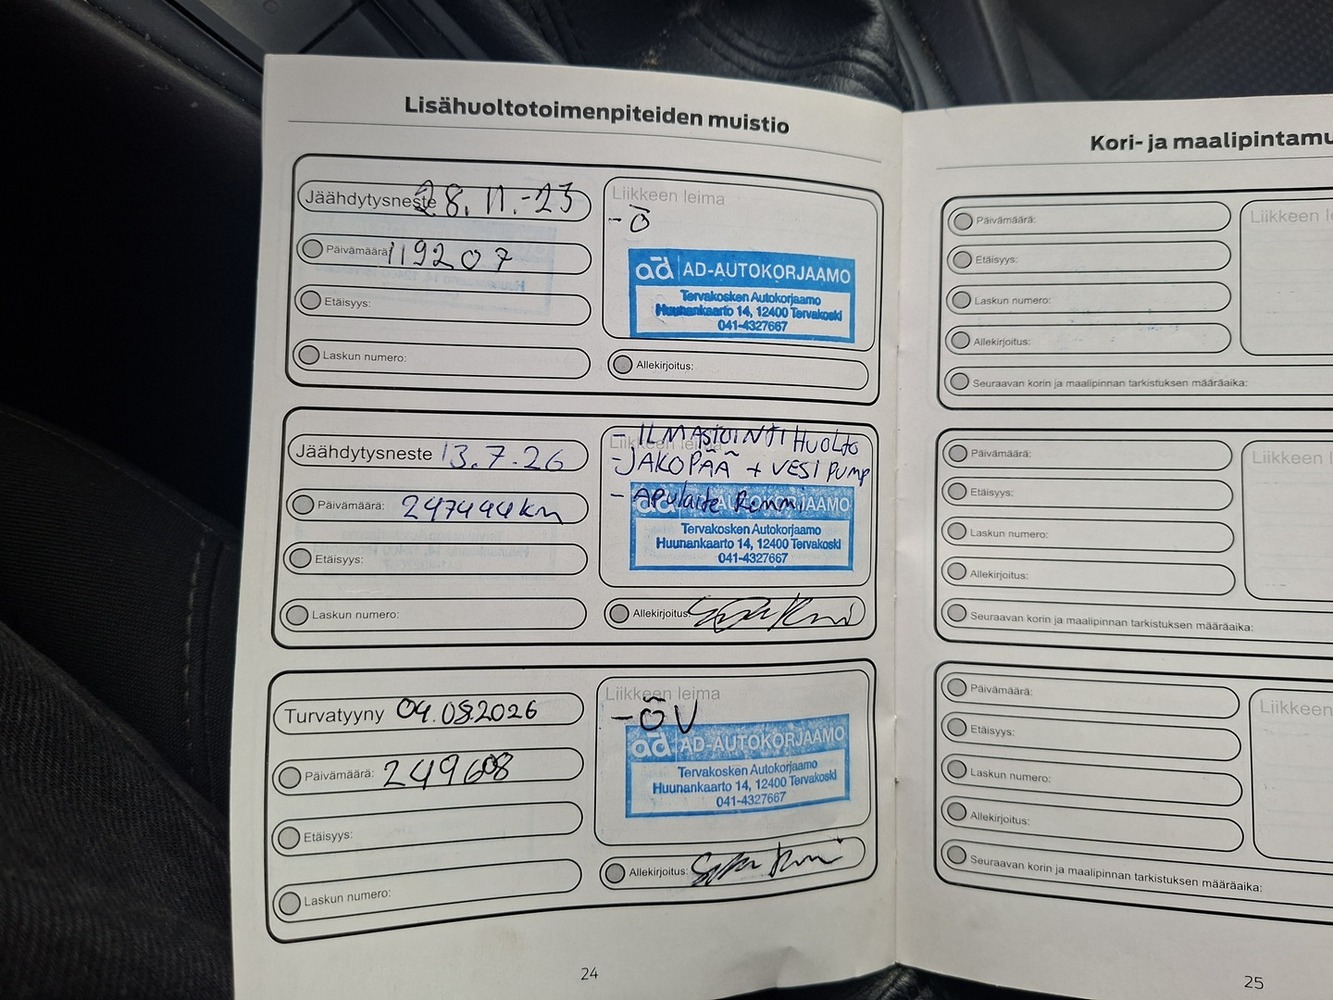 Lisähuoltotoimenpiteiden muistio
Jäähdytysneste 28.11.-23
Päivämäärä: 119207
Etäisyys:
Laskun numero:
Liikkeen leima
-Ö
ad AD-AUTOKORJAAMO
Tervakosken Autokorjaamo
Huunankaarto 14, 12400 Tervakoski
041-4327667
Allekirjoitus:
Jäähdytysneste 13.7.26
Päivämäärä: 247444km
Etäisyys:
Laskun numero:
Liikkeen leima
- ILMASTOINTI HUOLTO
- JAKOPÄÄ + VESI PUMP
- APulaite Remmi
ad AD-AUTOKORJAAMO
Tervakosken Autokorjaamo
Huunankaarto 14, 12400 Tervakoski
041-4327667
Allekirjoitus:
Turvatyyny 04.08.2026
Päivämäärä: 249608
Etäisyys:
Laskun numero:
Liikkeen leima
-ÖV
ad AD-AUTOKORJAAMO
Tervakosken Autokorjaamo
Huunankaarto 14, 12400 Tervakoski
041-4327667
Allekirjoitus:
24
Kori- ja maalipintamu
Päivämäärä:
Etäisyys:
Laskun numero:
Allekirjoitus:
Liikkeen l
Seuraavan korin ja maalipinnan tarkistuksen määräaika:
Päivämäärä:
Etäisyys:
Laskun numero:
Allekirjoitus:
Liikkeen l
Seuraavan korin ja maalipinnan tarkistuksen määräaika:
Päivämäärä:
Etäisyys:
Laskun numero:
Allekirjoitus:
Liikkeen
Seuraavan korin ja maalipinnan tarkistuksen määräaika:
25